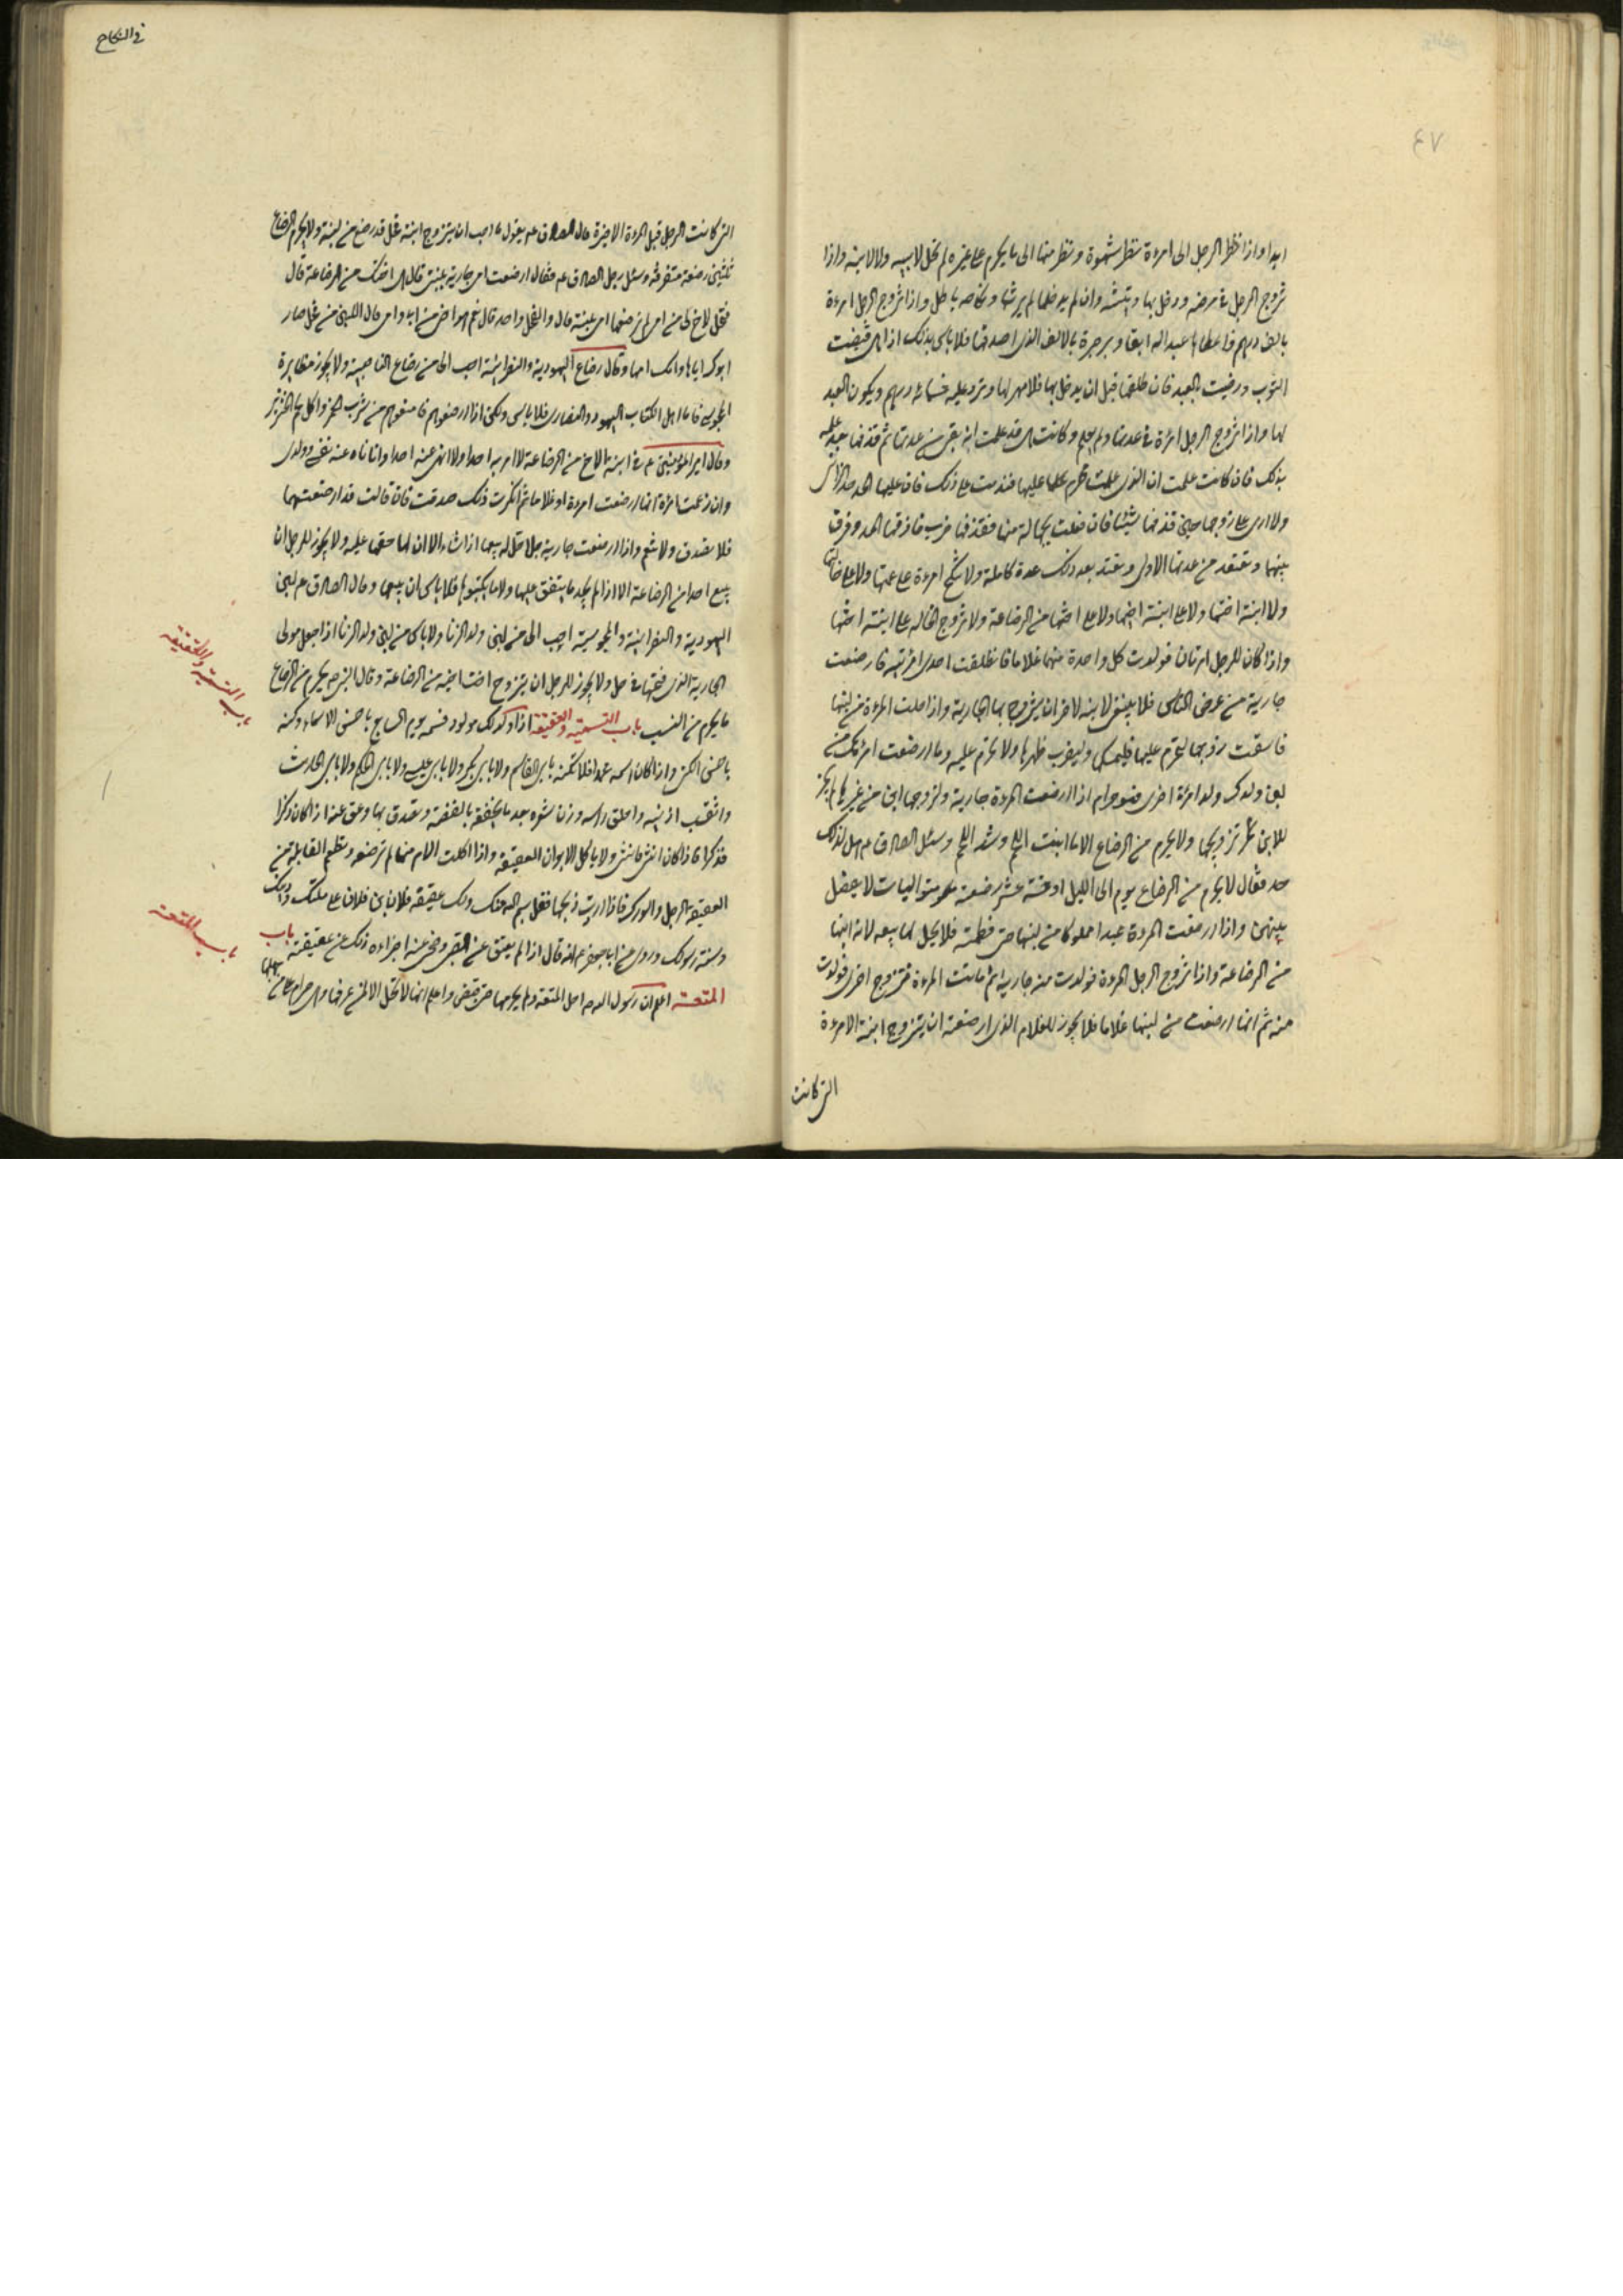 ٧٤
ابدا واذا نظر الرجل الى امرءة نظر شهوة ونظر منها الى ما يحرم على غيره لم تحل لابيه ولا لابنه واذا
تزوج الرجل فى مرضه ودخل بها ورثته وان لم يدخلها لم يرثها ونكاحه باطل واذا تزوج الرجل امرءة
بالف درهم فاعطاها عبدا له ابقا وبرد حبرة بالالف الذى اصدقها فلا باس بذلك اذا هى قبضت
الثوب ورضيت بالعبد فان طلقها قبل ان يدخل بها فلا مهر لها وترد عليه خمسمائة درهم ويكون العبد
لها واذا تزوج الرجل امرئة فى عدتها ولم يعلم وكانت هى قد علمت انه بقى من عدتها ثم قذفها بعد علمه
بذلك فان كانت علمت ان الذى عملت محرم عليها فقدمت على ذلك فان عليها الحد حد الزانى
ولا ارى على زوجها حين قذفها شيئا فان فعلت بجهالة منها فقذفها ضرب قاذفها الحد وفرق
بينهما وتعتد من عدتها الاولى وتعتد بعد ذلك عدة كاملة ولا ينكح امرءة على عمتها ولا على خالتها
ولا ابنة اختها ولا على ابنة اخيها ولا على اختها من الرضاعة ولا تزوج الخاله على ابنة اختها
واذا كان للرجل امرتان فولدت كل واحدة منهما غلاما فانطلقت احدى امرئتيه فارضعت
جارية من عرض الناس فلا ينبغى لابنه الاخر ان يتزوج بها الجارية واذا حلبت المرءة من لبنها
فاسقت زوجها لتحرم عليها فليمسكها وليضرب ظهرها ولا تحرم عليه وما ارضعت امرئتك من
لبن ولدك ولد امرئة اخرى فهو حرام اذا ارضعت المرءة جارية ولزوجها ابن من غيرها لم يجز
للابن تزويجها ولا يحرم من الرضاع الا ما انبت اللحم وشد اللحم وسئل الصادق ع هل لذلك
حد فقال لا يحرم من الرضاع يوم الى الليل او خمسة عشر رضعة متواليات لا يفصل
بينهن واذا ارضعت المرءة عبدا مملوكا من لبنها حتى فطمته فلا يحل لها بيعه لانه ابنها
من الرضاعة واذا تزوج الرجل المرءة فولدت منه جارية ثم ماتت المرءة فتزوج اخرى فولدت
منه ثم انها ارضعت من لبنها غلاما فلا يجوز للغلام الذى ارضعته ان يتزوج ابنة الامرءة
التى كانت
فى النكاح
التى كانت الرجل قبل المرءة الاخيرة قال الصادق ع يقول ما احب ان يتزوج ابنة فحل قد رضع من لبنه ولا يحرم الرضاع
ثلثين رضعة متفرقة وسئل رجل الصادق ع فقال ارضعت امى جارية بلبنى قال هى اختك من الرضاعة قال
فتحل لاخ لى من امى لم ترضعها امى بلبنه قال والفحل واحد قال نعم هو اخى من ابى وامى قال اللبن من فحل صار
ابوك اباها وامك امها وقال رضاع اليهودية والنصرانية احب الى من رضاع الناصبية ولا يجوز مظايرة
المجوسى فاما اهل الكتاب اليهود والنصارى فلا باس ولكن اذا ارضعوهم فامنعوهم من شرب الخمر واكل لحم الخنزير
وقال امير المؤمنين ع فى ابنة الاخ من الرضاعة لا امر به احدا ولا انهى عنه احدا وانا ناه عنه نفسى وولدى
وان زعمت امرءة انها ارضعت امرءة او غلاما ثم انكرت ذلك صدقت فان قالت قد ارضعتهما
فلا تصدق ولا تنعم واذا ارضعت جارية رجلا حل له بيعها اذا شاء الا ان لها حقها عليه ولا يجوز للرجل ان
يبيع اخته من الرضاعة الا اذا لم يجد ما ينفق عليها ولا ما يكسوها فلا باس ان يبيعها وقال الصادق ع لبن
اليهودية والنصرانية والمجوسية احب الى من لبن ولد الزنا ولا باس من لبن ولد الزنا اذا جعل مولى
الجارية الذى فجر بها فى حل ولا يجوز للرجل ان يتزوج اخت اخيه من الرضاعة وقال النبى ص يحرم من الرضاع
ما يحرم من النسب باب التسمية والعقيقة اذا ولد لك مولود فسمه يوم السابع باحسن الاسماء وكنه
باحسن الكنى واذا كان اسمه محمدا فلا تكنه بابى القاسم ولا بابى بكر ولا بابى عيسى ولا بابى الحكم ولا بابى الحارث
واثقب اذنيه واحلق راسه وزن شعره بعد ما يجففه بالفضة وتصدق بها وعق عنه اذا كان ذكرا
فذكرا فاذا كان انثى فانثى ولا ياكل الابوان العقيقة واذا اكلت الام منها لم ترضعه وتطعم القابلة من
العقيقة الرجل والورك فاذا اردت ذبحها فقل بسم الله منك ولك عقيقة فلان بن فلان على ملتك ودينك
وسنة رسولك وروى عن ابى جعفر ع انه قال اذا لم يعق عن الصبى وضحى عنه اجزاءه ذلك عن عقيقته باب
المتعة اعلم ان رسول الله ص احل المتعة ولم يحرمها حتى قبض واعلم انها لا تحل الا لمن عرفها وهى حرام على من جهلها
باب التسمية والعقيقه
باب المتعه